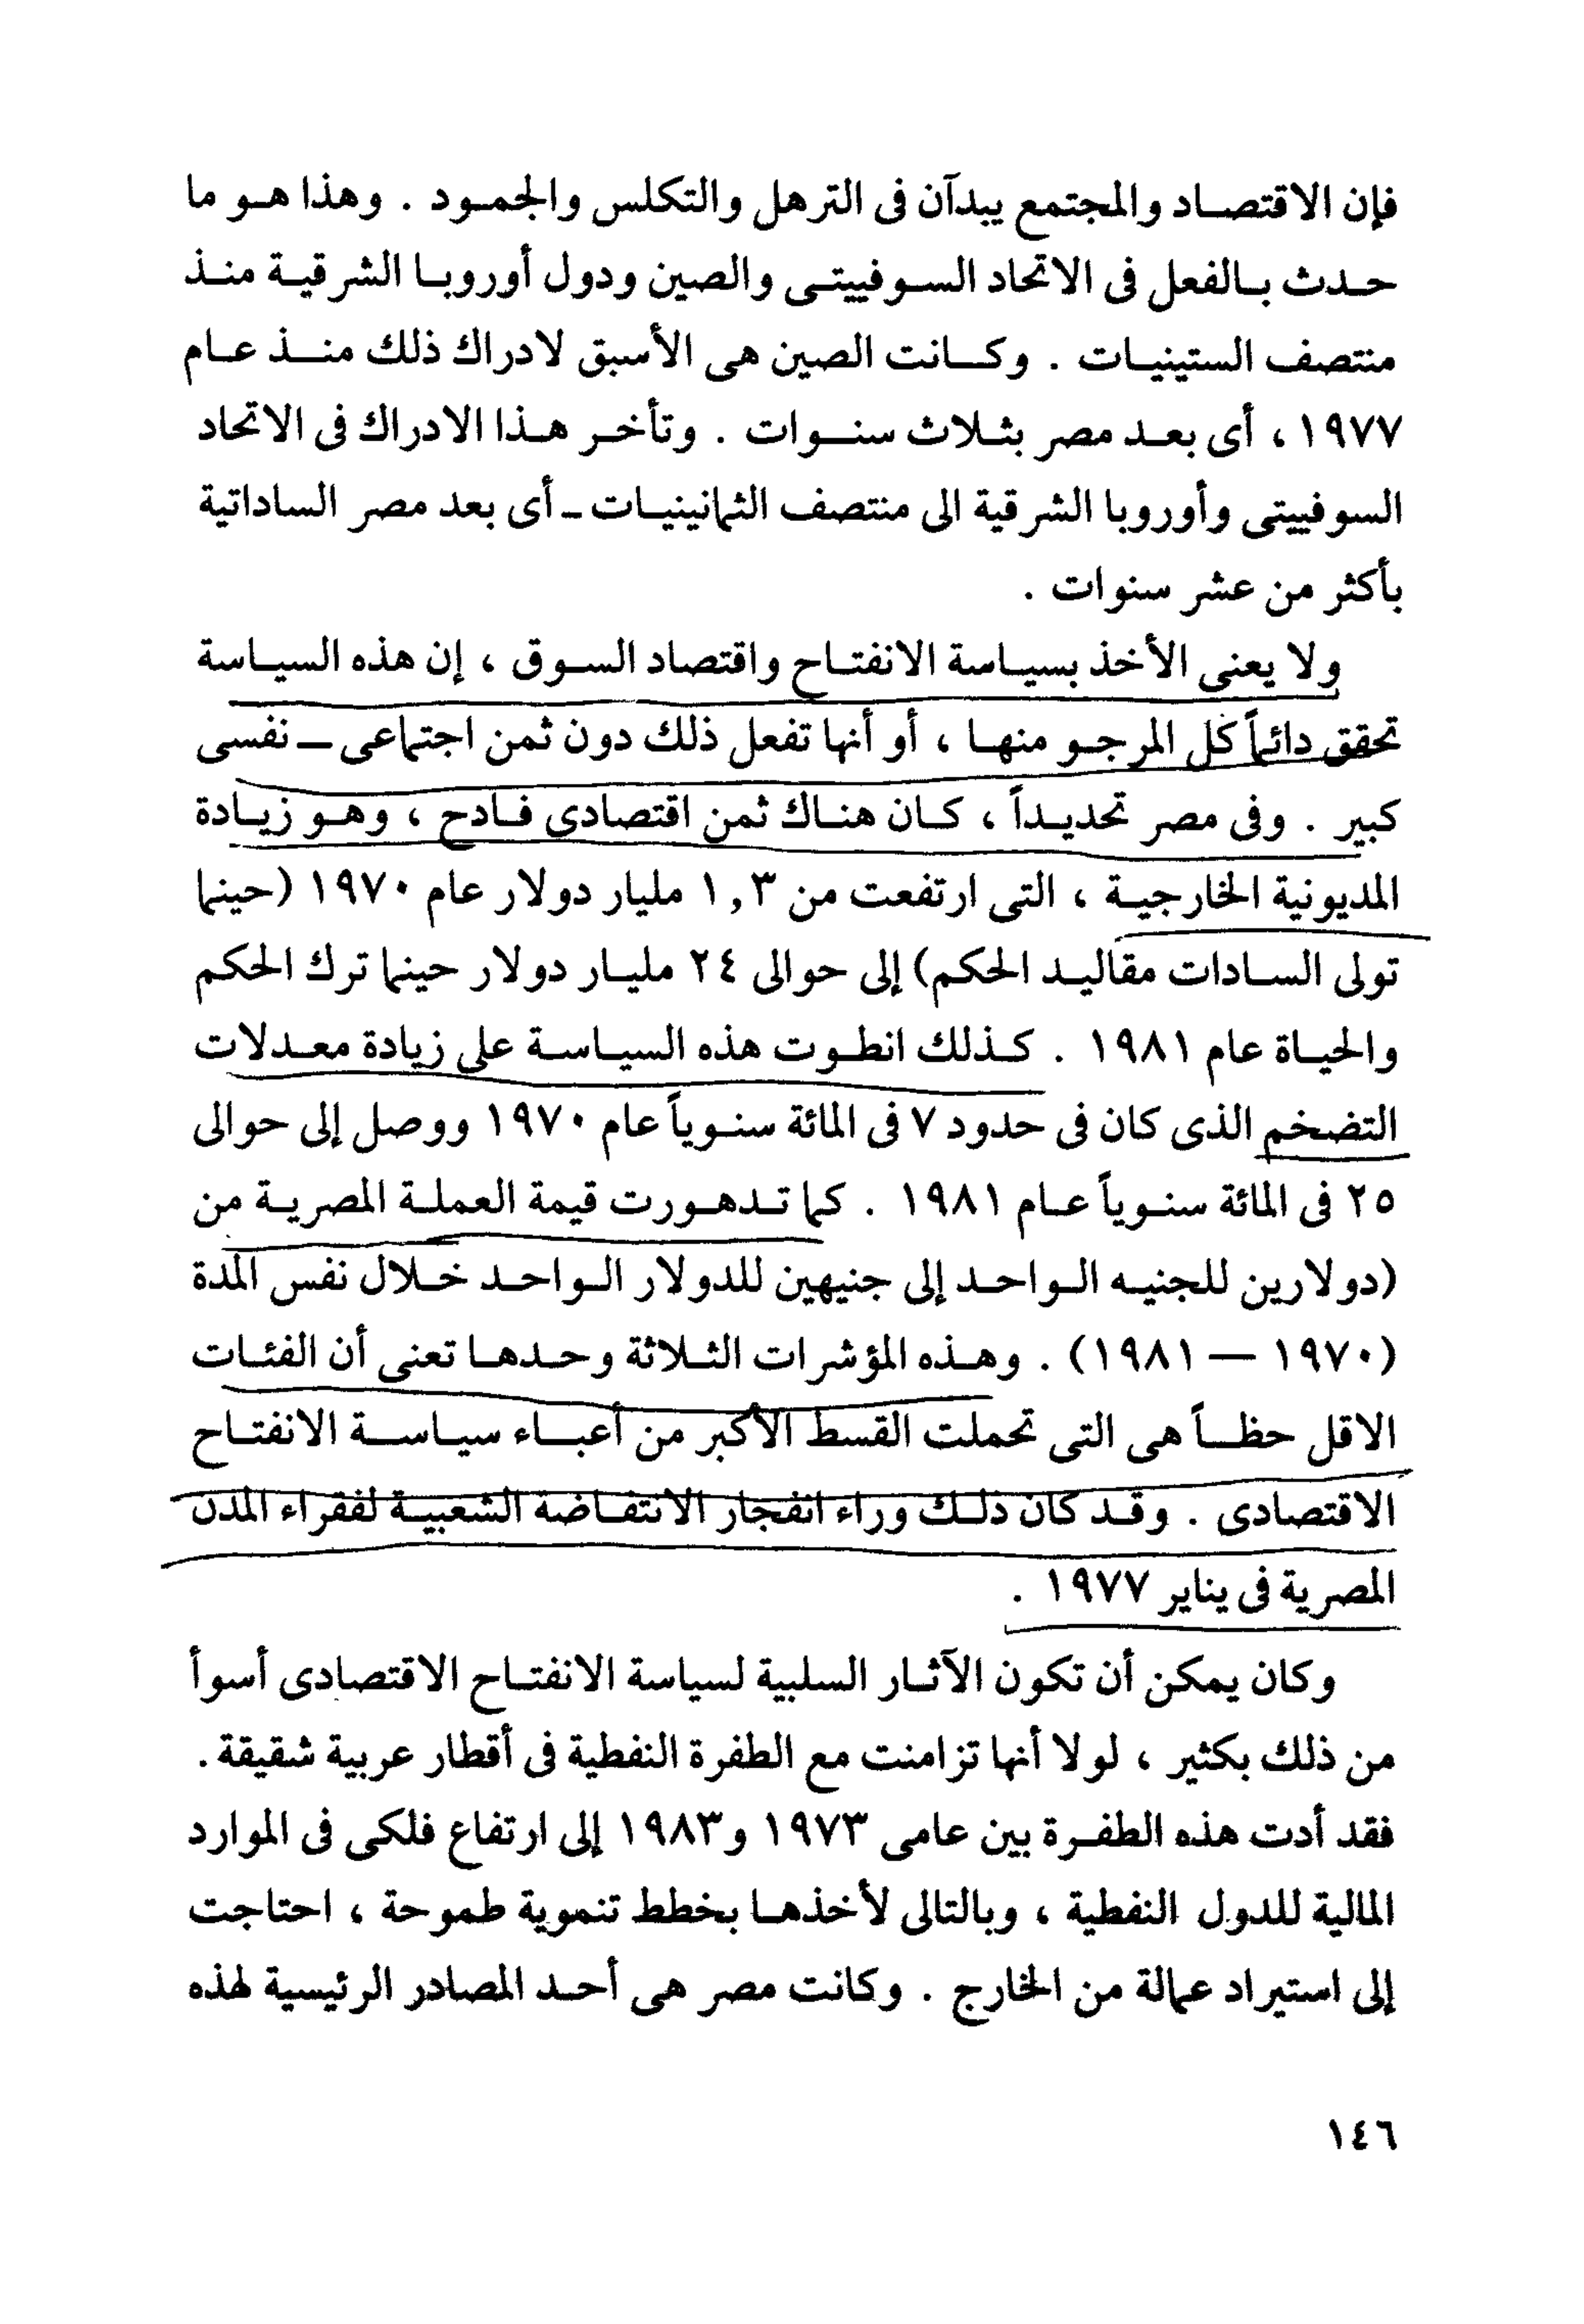 فإن الاقتصاد والمجتمع يبدآن فى الترهل والتكلس والجمود . وهذا هو ما
حدث بالفعل فى الاتحاد السوفييتى والصين ودول أوروبا الشرقية منذ
منتصف الستينيات . وكانت الصين هى الأسبق لادراك ذلك منذ عام
١٩٧٧ ، أى بعد مصر بثلاث سنوات . وتأخر هذا الادراك فى الاتحاد
السوفييتى وأوروبا الشرقية الى منتصف الثمانينيات - أى بعد مصر الساداتية
بأكثر من عشر سنوات .
ولا يعنى الأخذ بسياسة الانفتاح واقتصاد السوق ، إن هذه السياسة
تحقق دائماً كل المرجو منها ، أو أنها تفعل ذلك دون ثمن اجتماعى — نفسى
كبير . وفى مصر تحديداً ، كان هناك ثمن اقتصادى فادح ، وهو زيادة
المديونية الخارجية ، التى ارتفعت من ١,٣ مليار دولار عام ١٩٧٠ (حينما
تولى السادات مقاليد الحكم) إلى حوالى ٢٤ مليار دولار حينما ترك الحكم
والحياة عام ١٩٨١ . كذلك انطوت هذه السياسة على زيادة معدلات
التضخم الذى كان فى حدود ٧ فى المائة سنوياً عام ١٩٧٠ ووصل إلى حوالى
٢٥ فى المائة سنوياً عام ١٩٨١ . كما تدهورت قيمة العملة المصرية من
(دولارين للجنيه الواحد إلى جنيهين للدولار الواحد خلال نفس المدة
(١٩٧٠ — ١٩٨١) . وهذه المؤشرات الثلاثة وحدها تعنى أن الفئات
الاقل حظاً هى التى تحملت القسط الأكبر من أعباء سياسة الانفتاح
الاقتصادى . وقد كان ذلك وراء انفجار الانتفاضة الشعبية لفقراء المدن
المصرية فى يناير ١٩٧٧ .
وكان يمكن أن تكون الآثار السلبية لسياسة الانفتاح الاقتصادى أسوأ
من ذلك بكثير ، لولا أنها تزامنت مع الطفرة النفطية فى أقطار عربية شقيقة .
فقد أدت هذه الطفرة بين عامى ١٩٧٣ و١٩٨٣ إلى ارتفاع فلكى فى الموارد
المالية للدول النفطية ، وبالتالى لأخذها بخطط تنموية طموحة ، احتاجت
إلى استيراد عمالة من الخارج . وكانت مصر هى أحد المصادر الرئيسية لهذه
١٤٦